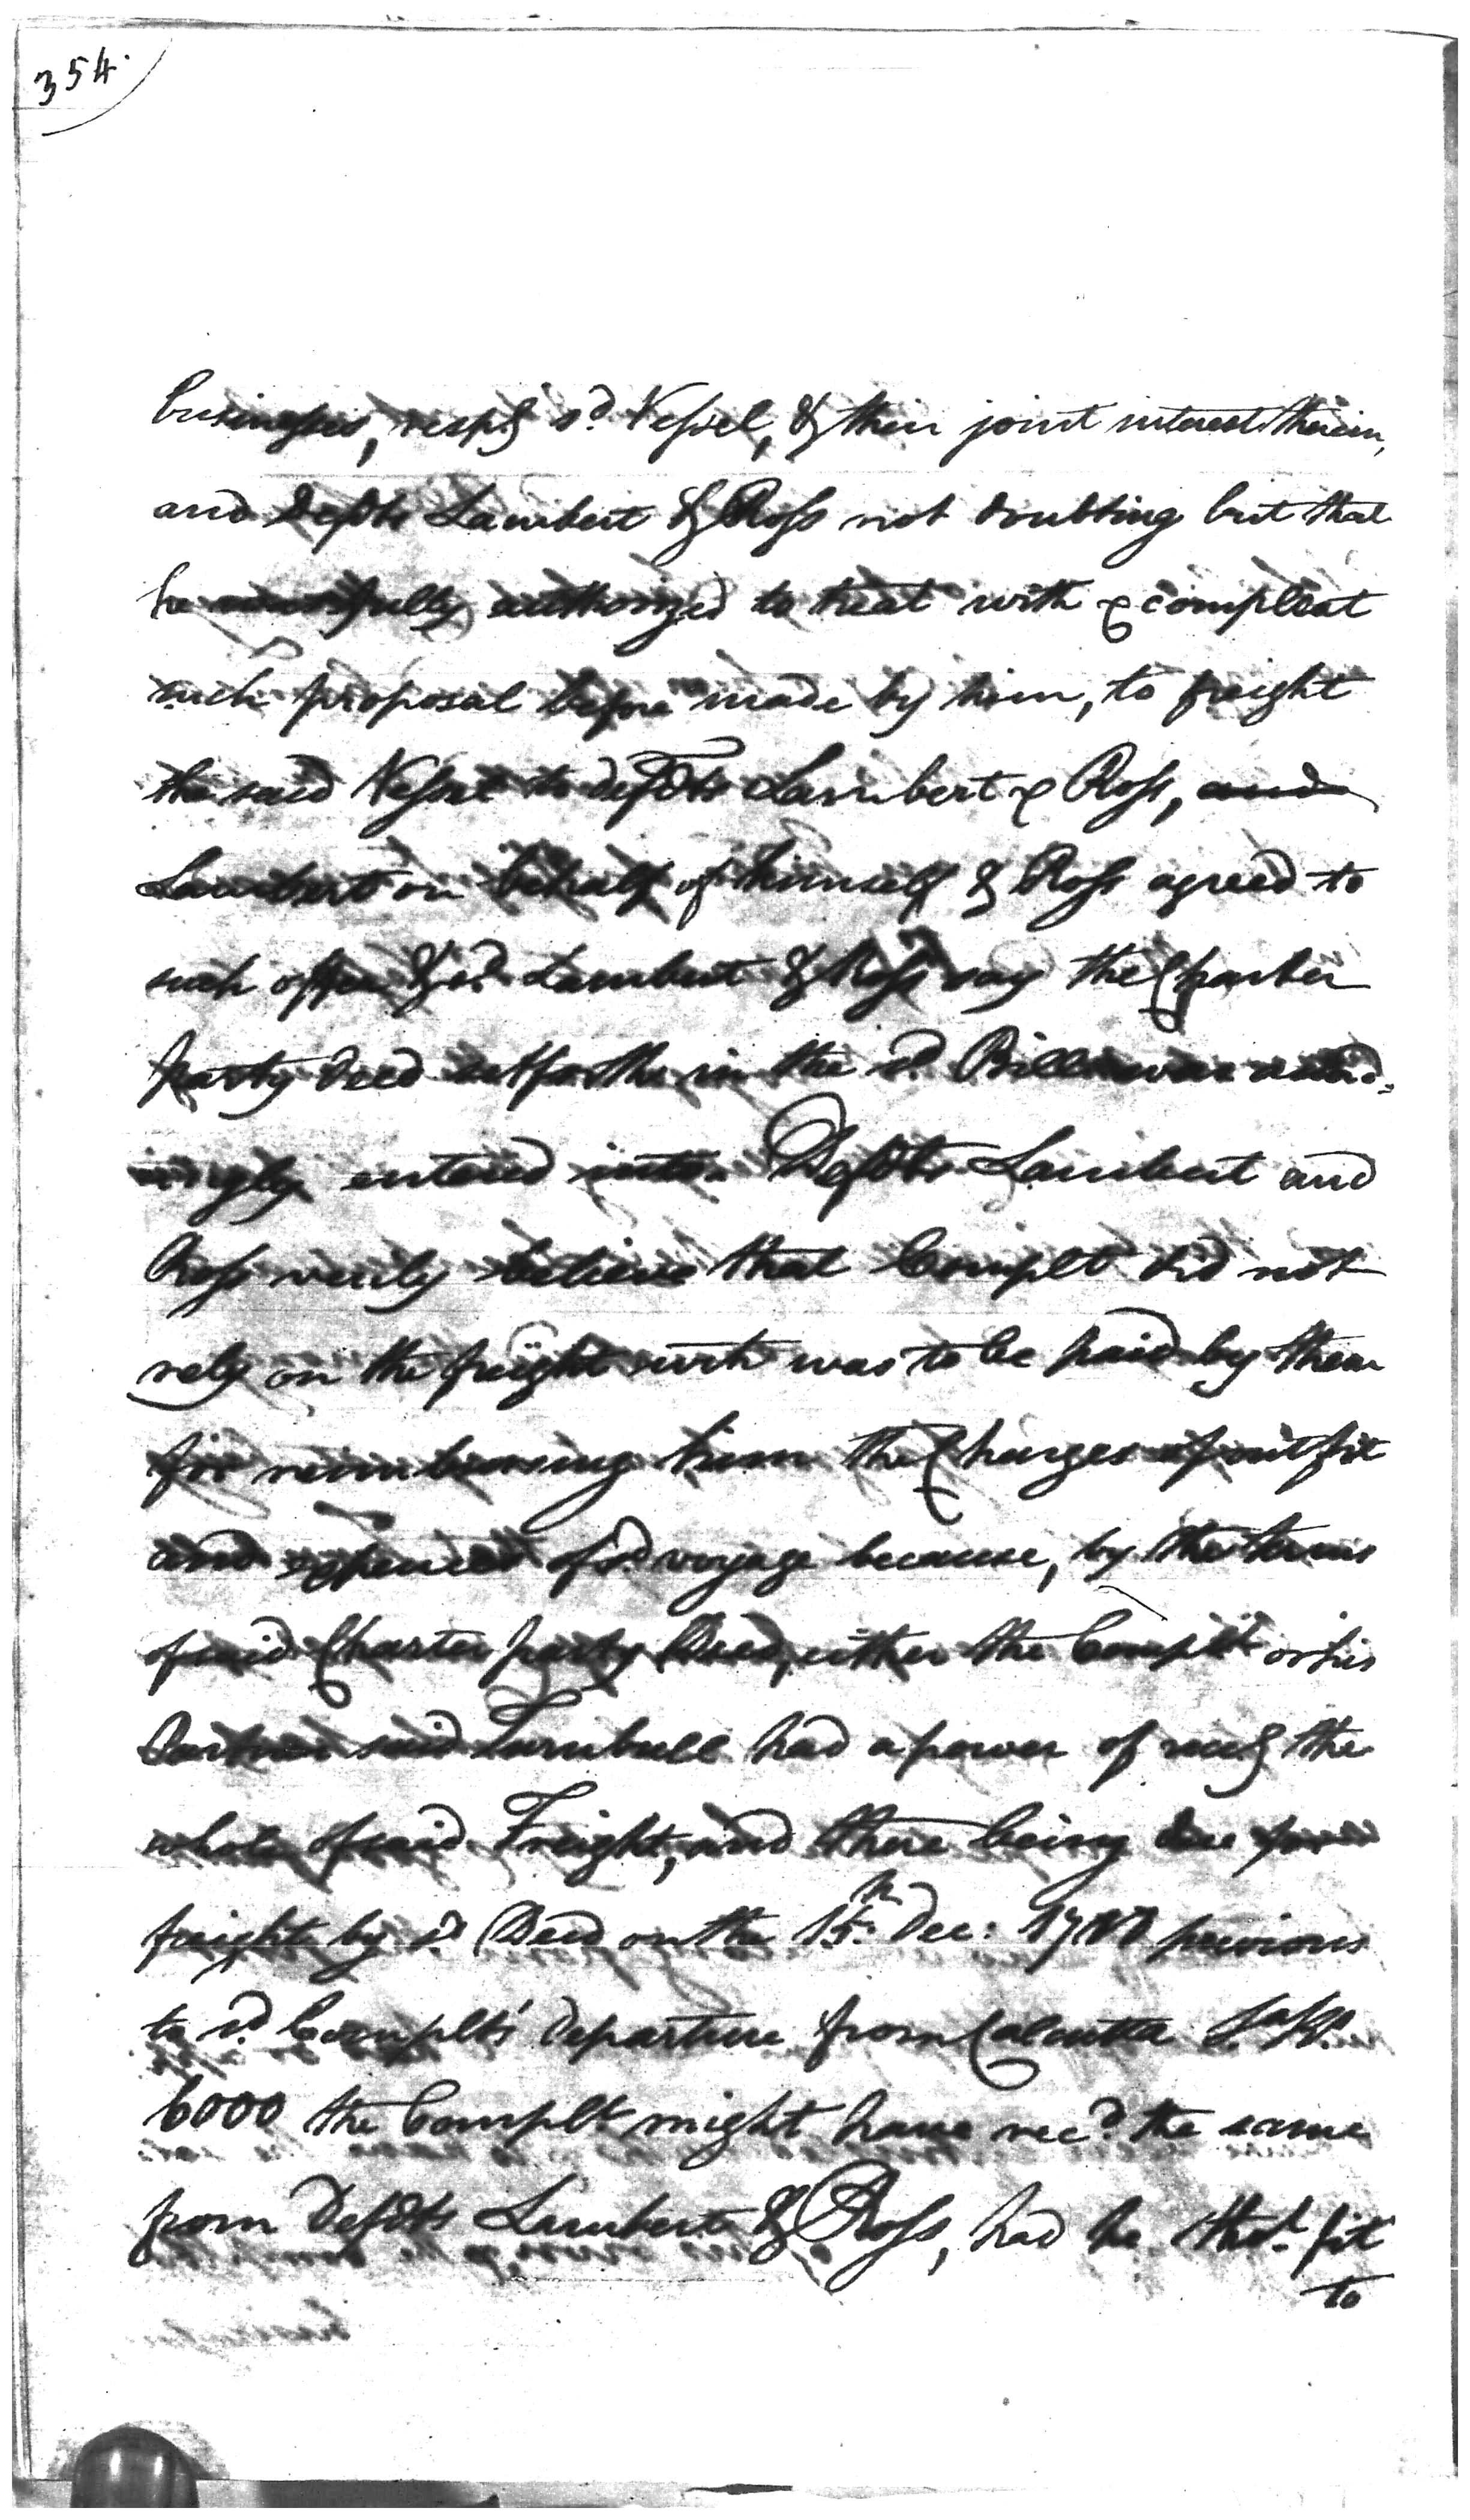 354.
businesses, respg sd. Vessel, & their joint interest therein,
and Defdts Lambert & Ross not doubting but that
he was fully authorized to treat with & compleat
such proposal before made by him, to freight
the said Vessel to Defdts Lambert & Ross, and
Lambert on behalf of himself & Ross agreed to
such offer & sd. Lambert & Ross say the Charter
party Deed setforth in the sd. Bill was
entered into. Defdts Lambert and
Ross verily believe that Complt did not
rely on the freight wch was to be paid by them
for reimbursing him the Charges of outfit
and expences of sd. voyage because, by the terms
of said Charter party Deed, either the Complt or his
Partner said Turnbull had a power of recg the
whole of said Freight, and there being due for
freight by sd. Deed on the 15th. Dec: previous
to sd. Complts' departure from Calcutta Sa. Rs.
6000 the Complt might have recd. the same
from Defdts Lambert & Ross, had he thot. fit
to